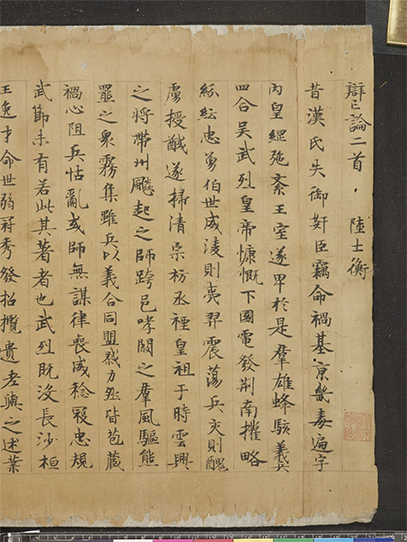 辯亡論二首 陸士衡
昔漢氏失御奸臣竊命禍基京畿毒遍宇
內皇綱弛紊王室遂卑於是羣雄蜂駭義兵
四合吳武烈皇帝慷慨下國電發荊南權略
紛紜忠勇伯世威淩則夷羿震蕩兵交則醜
虜授馘遂掃清宗祊丞禋皇祖于時雲興
之將帶州飈起之師跨邑哮闞之羣風驅熊
羆之衆霧集雖兵以義合同盟戮力然皆苞藏
禍心阻兵怙亂或師無謀律喪威稔寇忠規
武節未有若此其著者也武烈既沒長沙桓
王逸才命世弱冠秀發招攬遺老與之述業